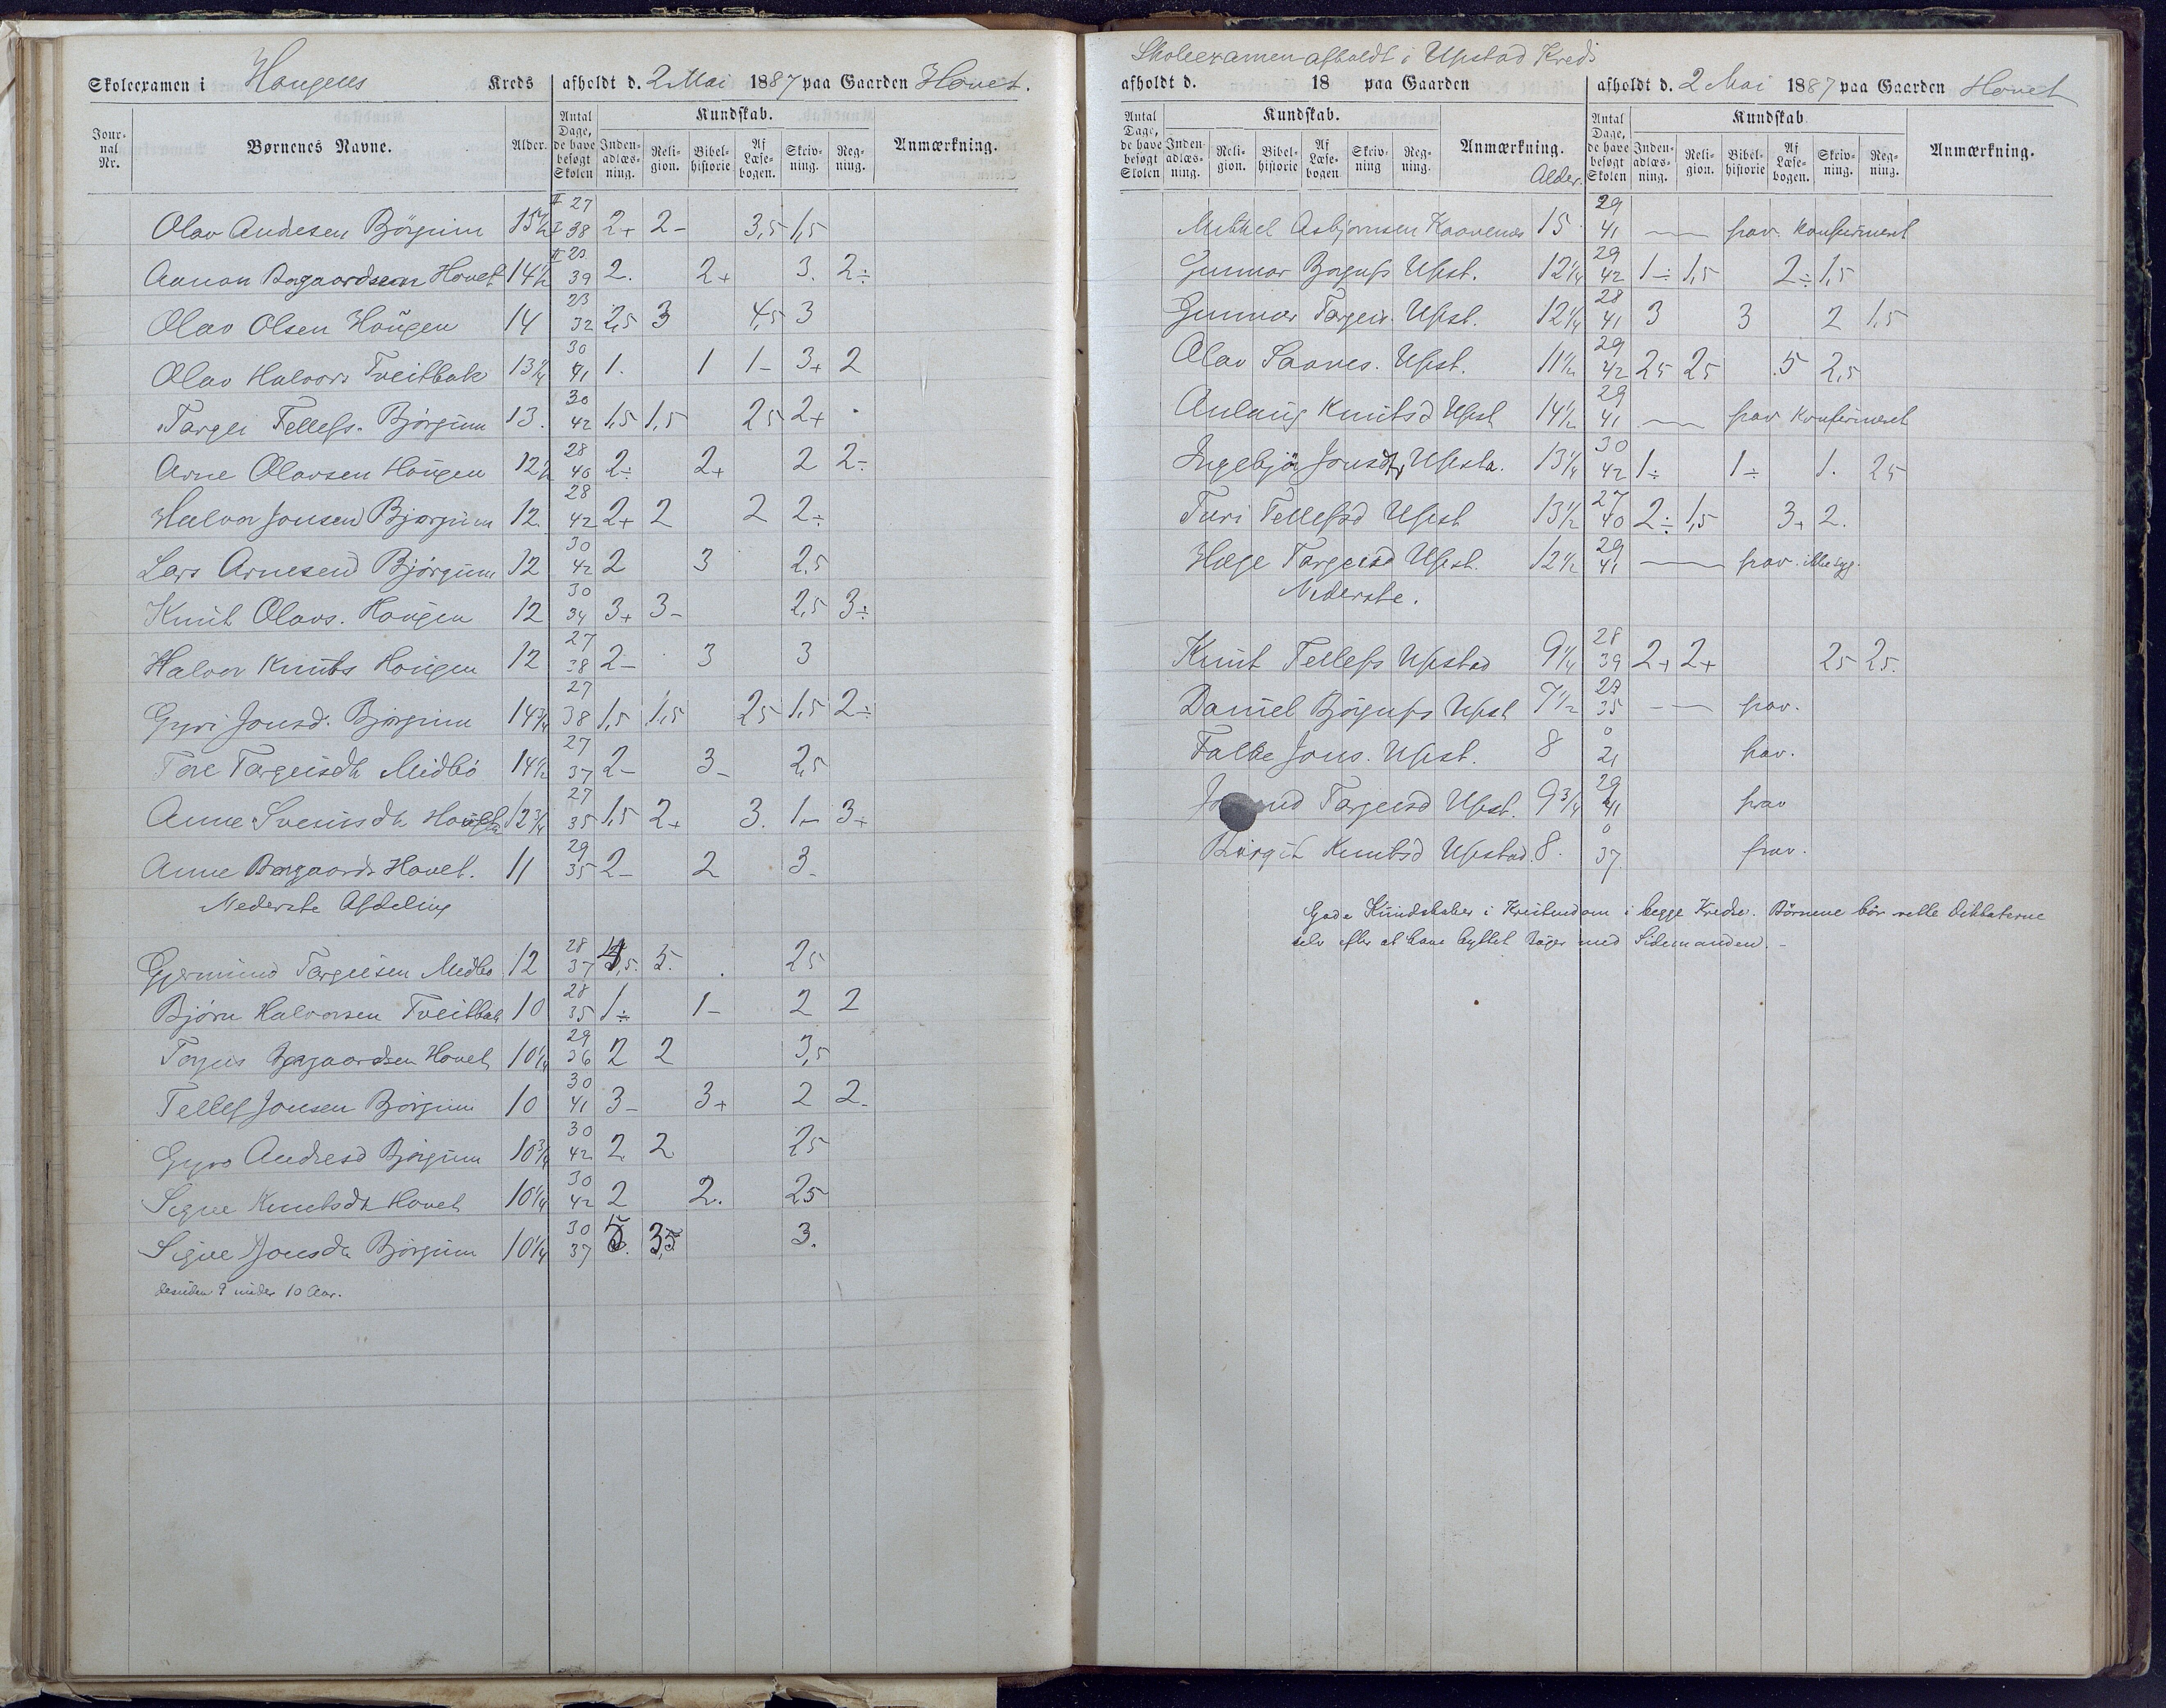 Skoleexamen i Hougens Kreds afholdt d. 2 Mai 1887 paa Gaarden Hovet.
Jour-nal Nr. Børnenes Navne. Alder. Antal Dage, de have besøgt Skolen Kundskab. Inden-adlæs-ning. Reli-gion. Bibel-historie Af Læse-bogen. Skriv-ning. Reg-ning. Anmærkning.
Olav Andresen Björgum 15 1/2 II 27 I 38 2+ 2- 3,5 1,5
Aanon Borgaardsen Hovet 14 1/2 II 23 39 2. 2+ 3. 2÷
Olav Olsen Hougen 14 23 32 2,5 3 4,5 3
Olav Halvors Tveitbak 13 1/4 30 41 1. 1 1- 3+ 2
Targei Tellefs. Björgum 13. 30 42 1,5 1,5 25 2+
Arne Olavsen Hougen 12 1/2 28 40 2÷ 2+ 2 2÷
Halvor Jonsen Bjørgum 12. 28 42 2+ 2 2 2÷
Lars Arnesen Björgum 12 30 42 2 3 2,5
Knut Olavs. Hougen 12 30 34 3+ 3- 2,5 3÷
Halvor Knuts Hougen 12 27 38 2- 3 3
Gyri Jonsd. Bjørgum 14 3/4 27 38 1,5 1,5 25 1,5 2÷
Tore Targeisdt Midbö 14 1/2 27 37 2- 3- 2,5
Anne Sveinsdt 12 3/4 27 35 1,5 2+ 3. 1- 3+
Anne Borgaards Hovet. 11 29 35 2- 2 3-
Nederste Afdeling
Gjermund Targeisen Midbö 12 28 37 5. 25
Bjørn Halvorsen Tveitbak 10 28 35 1÷ 1- 2 2
Torjus Borgaardsen Hovet 10 1/4 29 36 2 2 3,5
Tellef Jonsen Björgum 10 30 41 3- 3+ 2 2-
Gyro Andresd Björgum 10 3/4 30 42 2 2 25
Signe Knutsdt Hovet 10 1/4 30 42 2 2. 25
Signe Jonsdt Björgum 10 1/4 30 37 5. 3,5 3.
desuden 9 under 10 Aar.
Skoleexamen afholdt i Upstad Kreds
afholdt d. 18 paa Gaarden afholdt d. 2 Mai 1887 paa Gaarden Hovet
Antal Dage, de have besøgt Skolen Kundskab. Inden-adlæs-ning. Reli-gion. Bibel-historie Af Læse-bogen Skriv-ning Reg-ning. Anmærkning. Alder. Antal Dage, de have besøgt Skolen Kundskab. Inden-adlæs-ning. Reli-gion. Bibel-historie Af Læse-bogen. Skriv-ning. Reg-ning. Anmærkning.
Mikkel Asbjørnsen 15 29 41 — frav. Konfirmeret
Gunnar Borgufs Upst. 12 1/4 29 42 1÷ 1,5 2÷ 1,5
Gunnar Targeis. Upst. 12 1/4 28 41 3 3 2 1,5
Olav Saaves. Upst. 11 1/2 29 42 25 25 .5 2,5
Aulaug Knutsd Upst 14 1/2 29 41 — frav Konfirmeret
Ingebjör Jonsdtr Upsta. 13 1/4 30 42 1÷ 1÷ 1. 25
Turi Tellefsd Upst 13 1/2 27 40 2÷ 1,5 3+ 2.
Hæge Targeisd Upst. 12 1/2 29 41 — frav. ikke syg.
Nederste.
Knut Tellefs Upstad 9 1/4 28 39 2+ 2+ 25 25.
Daniel Björgufs Upst 7 1/2 27 35 — frav.
Falke Jons. Upst. 8 0 21 frav.
Targeisd Upst. 9 3/4 29 41 frav
Birgit Knutsd Upstad. 8. 0 37. frav.
Gode Kundskaber i Kristendom i begge Kredse. Börnene bör rette Diktaterne
selv efter at have byttet Böger med Sidemanden. -